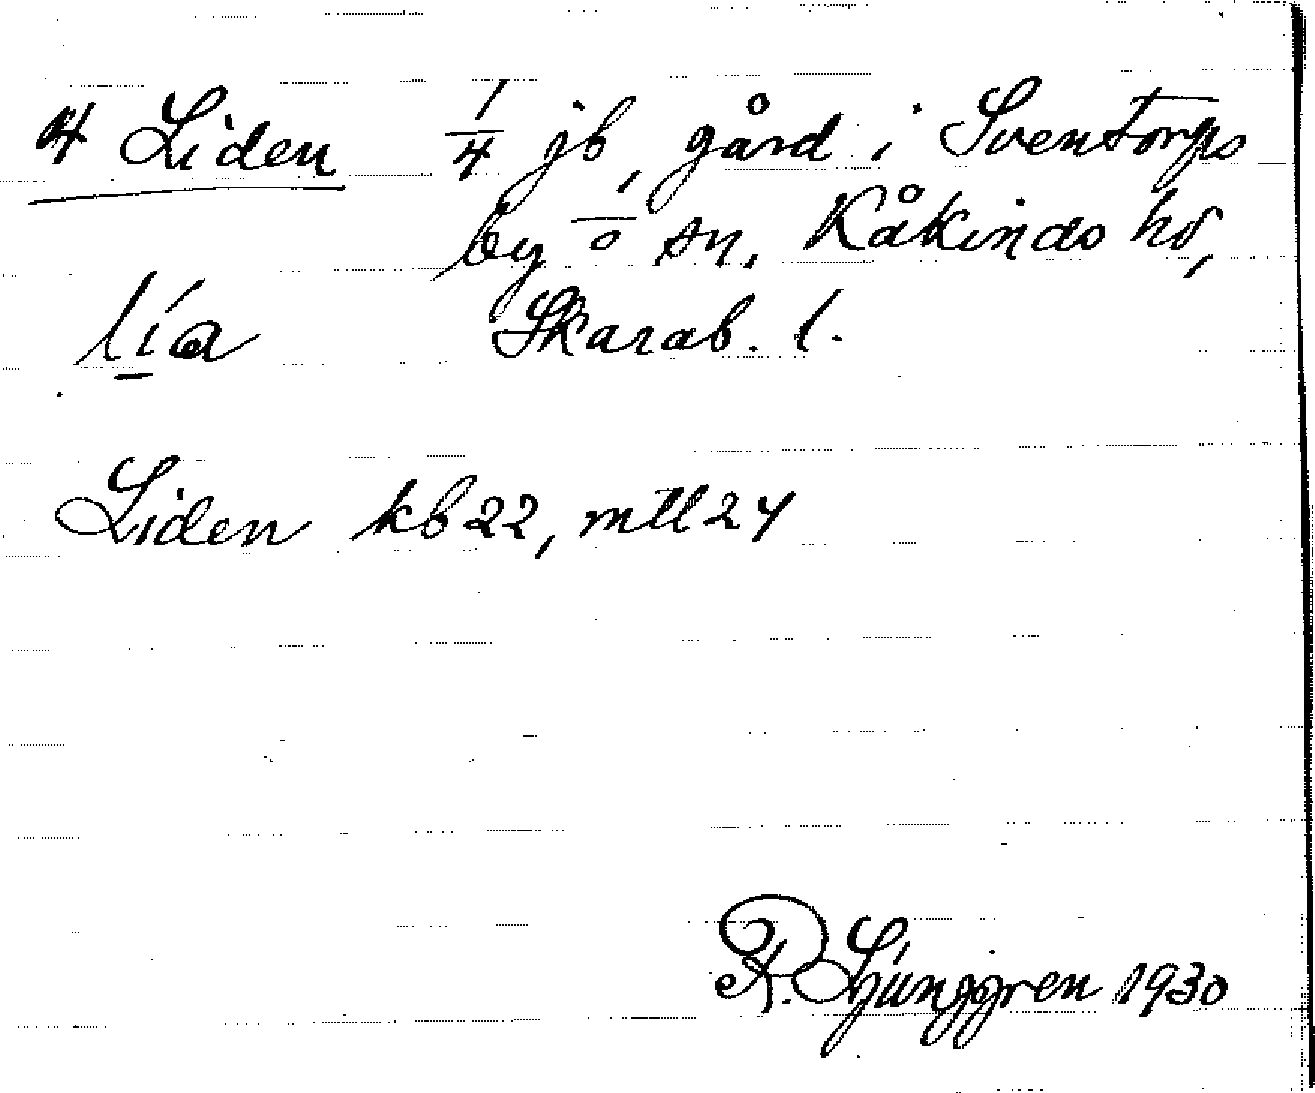 4 Liden 1/4 jb, gård i Sventorps
by o sn, Kåkinds hd,
lía Skarab. l.
Liden kb 22, mtl 24
R. Ljunggren 1930